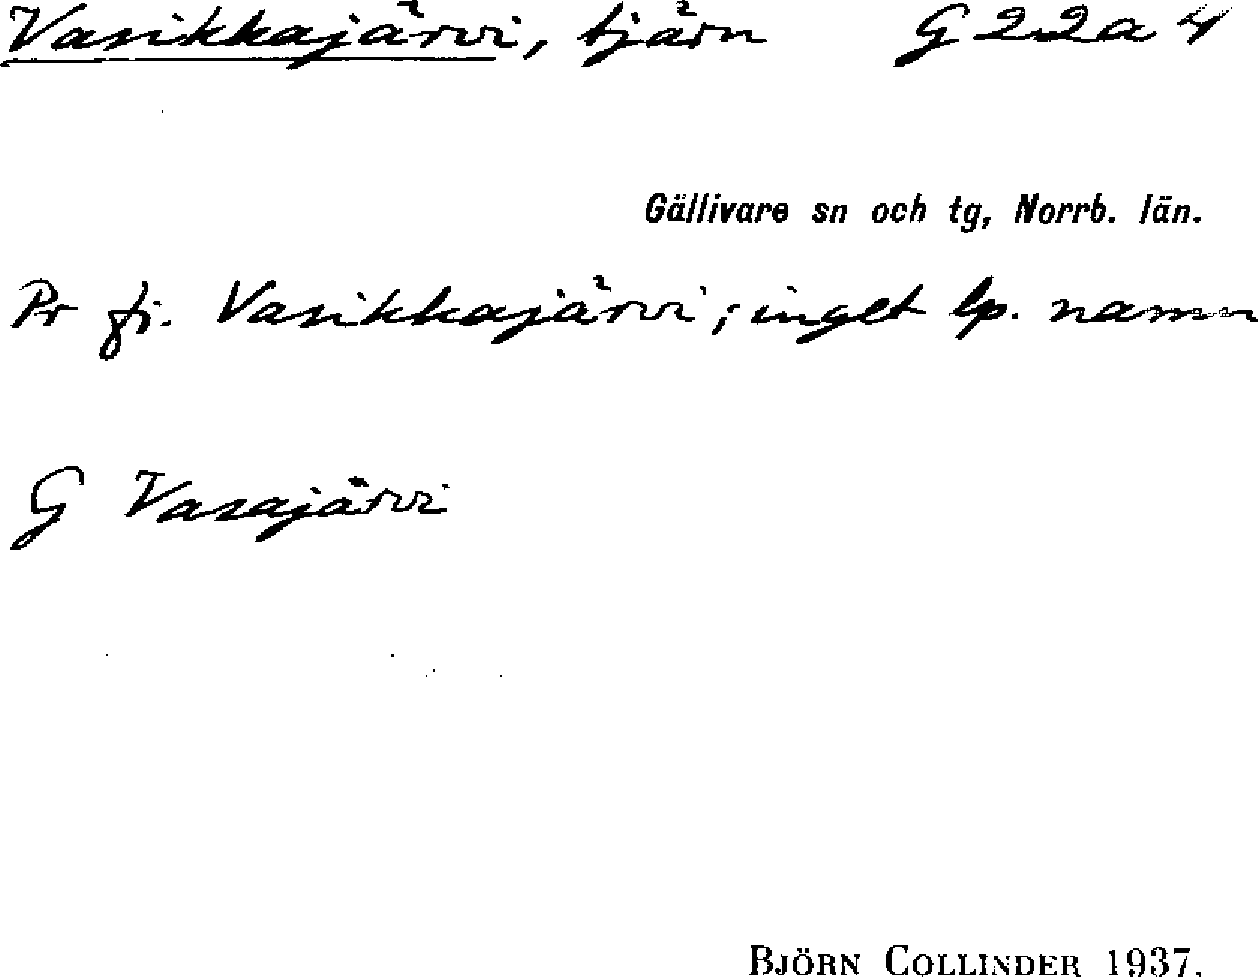 Vasikkajärvi, tjärn G 22a 4
Gällivare sn och tg, Norrb. län.
Pr fi. Vasikkajärvi; inget lp. namn
G Vasajärvi
BJÖRN COLLINDER 1937.